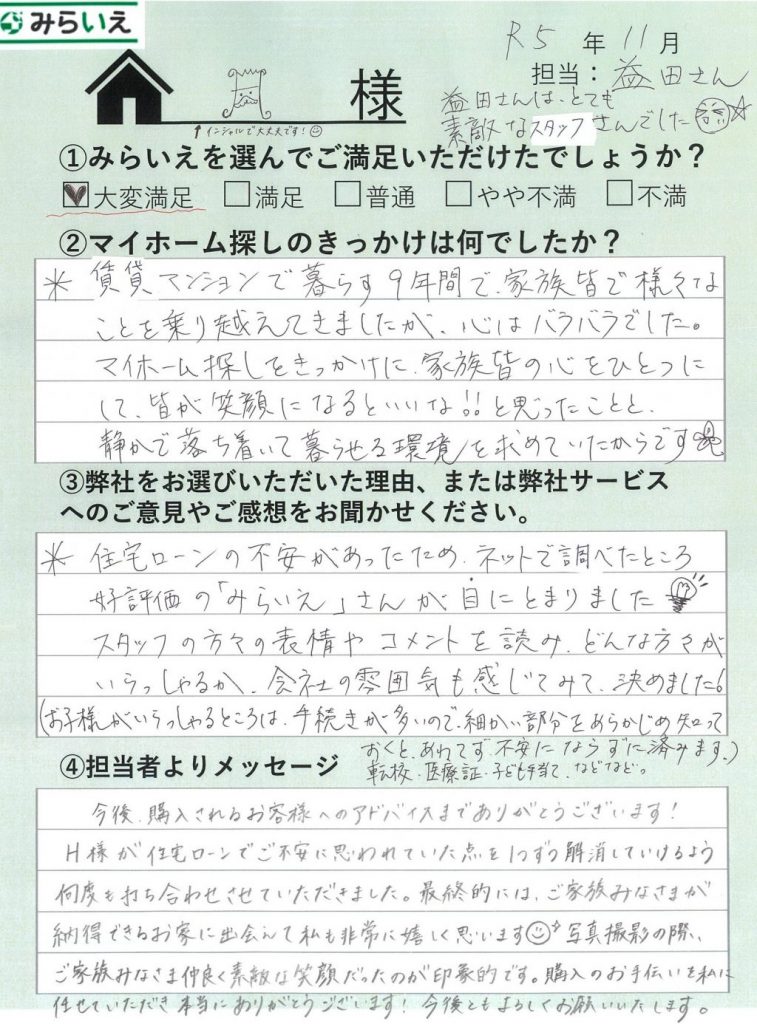 みらいえ
R5 年 11月
担当：益田さん
様
↑イニシャルで大丈夫です！
益田さんは、とても
素敵なスタッフさんでした
①みらいえを選んでご満足いただけたでしょうか？
大変満足 満足 普通 やや不満 不満
②マイホーム探しのきっかけは何でしたか？
＊ 賃貸マンションで暮らす9年間で、家族皆で様々な
ことを乗り越えてきましたが、心はバラバラでした。
マイホーム探しをきっかけに、家族皆の心をひとつに
して、皆が笑顔になるといいな!!と思ったことと、
静かで落ち着いて暮らせる環境を求めていたからです
③弊社をお選びいただいた理由、または弊社サービス
へのご意見やご感想をお聞かせください。
＊ 住宅ローンの不安があったため、ネットで調べたところ
好評価の「みらいえ」さんが目にとまりました
スタッフの方々の表情やコメントを読み、どんな方々が
いらっしゃるか、会社の雰囲気も感じてみて、決めました！
(お子様がいらっしゃるところは、手続きが多いので、細かい部分をあらかじめ知って
おくと、あわてず不安にならずに済みます。)
転校・医療証・子ども手当て、などなど。
④担当者よりメッセージ
今後、購入されるお客様へのアドバイスまでありがとうございます！
H様が住宅ローンでご不安に思われていた点を1つずつ解消していけるよう
何度も打ち合わせさせていただきました。最終的には、ご家族みなさまが
納得できるお家に出会えて私も非常に嬉しく思います 写真撮影の際、
ご家族みなさま仲良く素敵な笑顔だったのが印象的です。購入のお手伝いを私に
任せていただき本当にありがとうございます！今後ともよろしくお願いいたします。